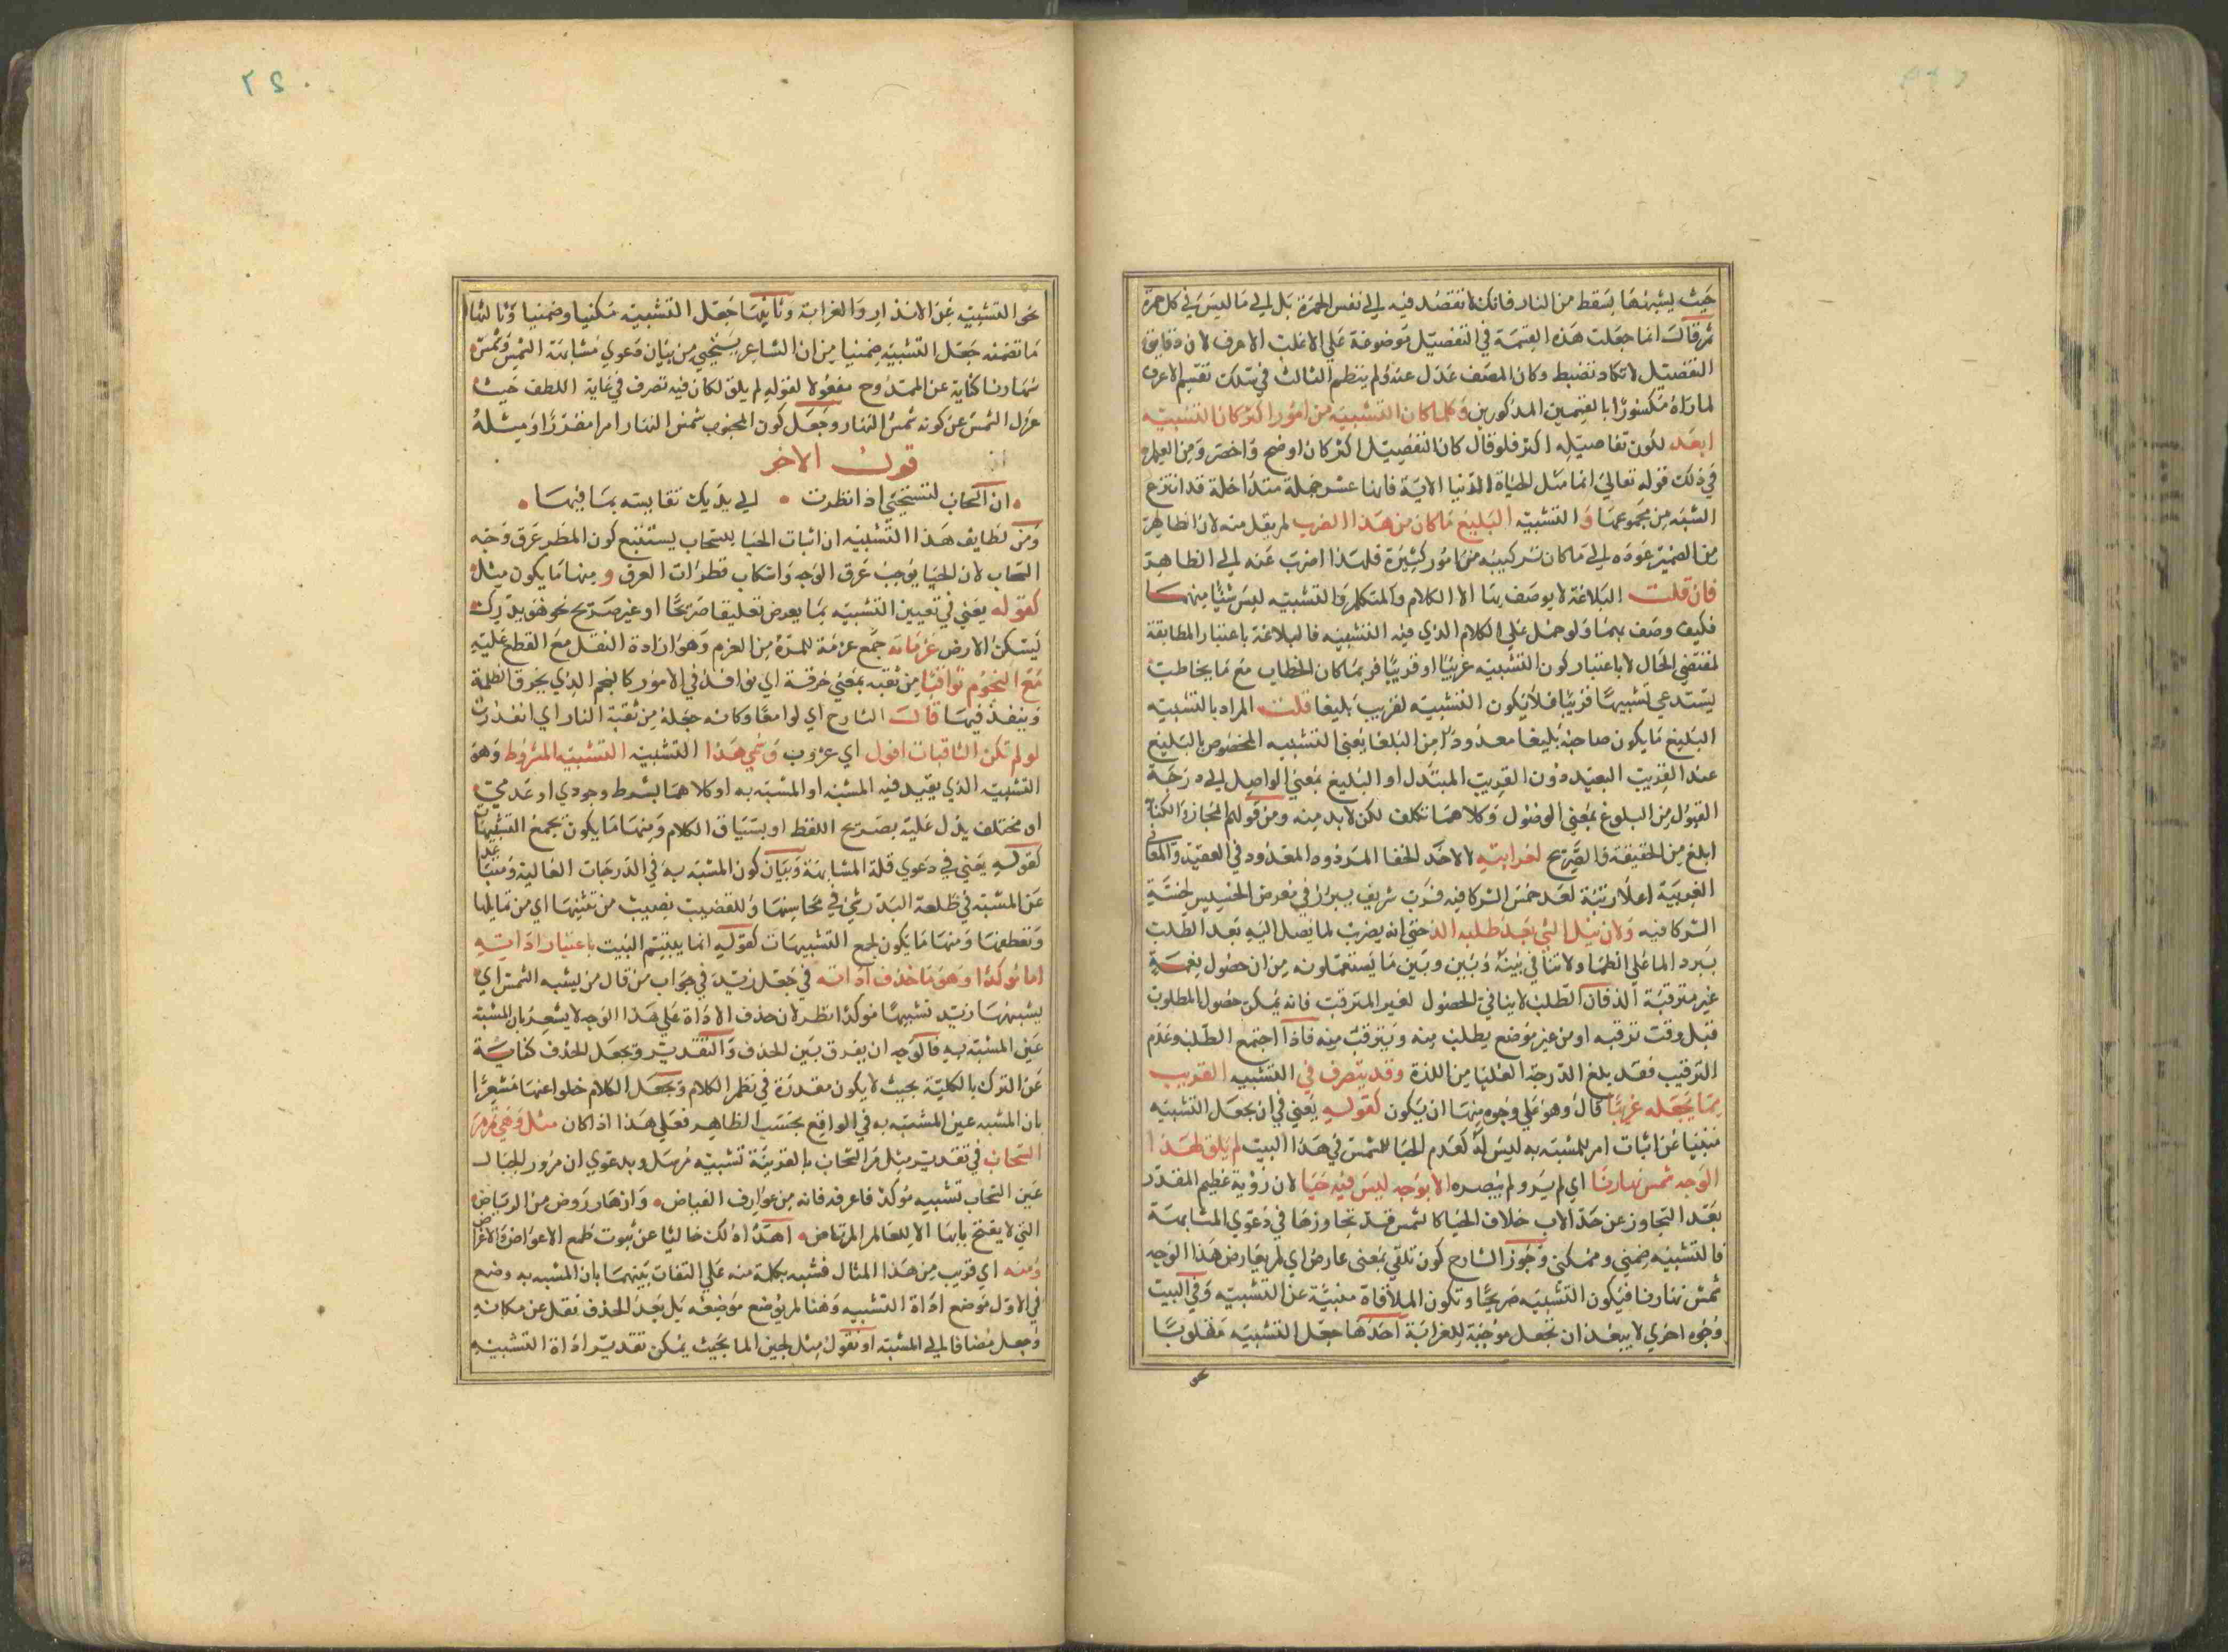 حيث يشبهها بسقط من النار فانك لا تقصد فيه الى نفس الحمرة بل الى ما ليس في كل حمرة
ثم قال انما جعلت هذه القسمة في التفصيل موضوعة على الاغلب الاعرف لان دقايق
التفصيل لا تكاد تنضبط وكان المصنف عدل عنه ولم ينظم الثالث في سلك تقسيم الاعرف
لما رآه مكسورا بالقسمين المذكورين وكلما كان التشبيه من امور اكثر كان التشبيه
ابعد لكون تفاصيله اكثر فلو قال كان التفصيل اكثر كان اوضح واخصر ومن العلم
في ذلك قوله تعالى انما مثل الحياة الدنيا الاية فانها عشر جملة متداخلة قد انتزع
الشبه من مجموعها و التشبيه البليغ ما كان من هذا الضرب لم يقل منه لان الظاهر
من الضمير عوده الى ما كان تركيبه من امور كثيرة فلهذا اضرب عنه الى الظاهر
فان قلت البلاغة لا يوصف بها الا الكلام والمتكلم والتشبيه ليس شيئا منهما
فكيف وصف بها ولو حمل على الكلام الذي فيه التشبيه فالبلاغة باعتبار المطابقة
لمقتضى الحال لا باعتبار كون التشبيه غريبا او قريبا فربما كان الخطاب مع ما يخاطب
يستدعي تشبيها قريبا فلا يكون التشبيه لغريب بليغا قلت المراد بالتشبيه
البليغ ما يكون صاحبه بليغا معدودا من البلغا يعني التشبيه المخصوص بالبليغ
عند القريب البعيد دون القريب المبتذل او البليغ بمعنى الواصل الى درجة
القبول من البلوغ بمعنى الوصول وكلاهما تكلف لكن لابد منه ومن قولهم المجاز والكناية
ابلغ من الحقيقة والصريح لغرابته لا لاحد الخفا المردود المعدود في العصية والمعاني
الغريبة اعلا رتبة لعد خمس الشركا فيه فرب شريف يبرز في معرض الخسيس لخسة
الشركا فيه ولان نيل الشي بعد طلبه الذ حتى انه يضرب لما يصل اليه بعد الطلب
ببرد الما على الظما ولا تنافي بينه وبين وبين ما يستعملونه من ان حصول نعمة
غير مترقبة الذ فان الطلب لا ينافي الحصول لغير المترقب فانه يمكن حصول المطلوب
قبل وقت ترقبه او من غير موضع يطلب منه ويترقب منه فاذا اجتمع الطلب وعدم
الترقب فقد بلغ الدرجة العليا من اللذة وقد يتصرف في التشبيه القريب
بما يجعله غريبا قال وهو على وجوه منها ان يكون كقوله يعني في ان يجعل التشبيه
مبنيا عن اثبات امر للمشبه به ليس له كعدم الحيا للشمس في هذا البيت لم يلق لهذا
الوجه شمس نهارنا اي لم ير ولم يبصره الا بوجه ليس فيه حيا لان رؤية عظيم المقدر
بعد التجاوز عن حد الاب خلاف الحيا كالشمس قد تجاوزها في دعوى المشابهة
فالتشبيه ضمني ومكني وجوز الشارح كون تلقى بمعنى عارض اي لم يعارض هذا الوجه
شمس نهارنا فيكون التشبيه صريحا وتكون الملاقاة منبئة عن التشبيه وفي البيت
وجوه اخرى لا يبعد ان تجعل موجبة للغرابة احدها جعل التشبيه مقلوبا
نحو
٢٤٠
نحو التشبيه عن الابتذال والغرابة وثانيها جعل التشبيه مكنيا وضمنيا وثالثها
ما تضمنه جعل التشبيه ضمنيا من ان الشاعر يستحيي من بيان دعوى مشابهة الشمس وشمس
نهارنا كناية عن الممدوح مفعولا لقوله لم يلق لكان فيه تصرف في غاية اللطف حيث
عزل الشمس عن كونه شمس النهار وجعل كون المحبوب شمس النهار امرا مقدرا ومثله
قول الاخر
ان السحاب لتستحيي اذا نظرت الى يديك تقايسته بما فيها
ومن لطايف هذا التشبيه ان اثبات الحيا للسحاب يستتبع كون المطر عرق وجه
السحاب لان الحيا يوجب عرق الوجه وانسكاب قطرات العرق و منها ما يكون مثل
كقوله يعني في تعيين التشبيه بما يعرض تعليقا صريحا او غير صريح نحو هو بدر
يسكن الارض عزماته جمع عزمة للمرة من العزم وهو ارادة الفعل مع القطع عليه
مع النجوم ثواقبا من ثقبه بمعنى خرقه اي نوافذ في الامور كالنجم الذي يخرق الظلمة
وينفذ فيها قال الشارح اي لوامعا وكانه جعله من ثقبة النار اي اتقدت
لو لم تكن الثاقبات افول اي غروب وسمي هذا التشبيه التشبيه المشروط وهو
التشبيه الذي يقيد فيه المشبه او المشبه به او كلاهما بشرط وجودي او عدمي
او مختلف يدل عليه بصريح اللفظ او بسياق الكلام ومنها ما يكون بجمع التشبيهات
كقوله يعني في دعوى قلة المشابهة وبيان كون المشبه به في الدرجات العالية ومتباعد
عن المشبه في طلعة البدر شي في محاسنها وللقضيب نصيب من تثنيها اي من تمايلها
وتعطفها ومنها ما يكون لجمع التشبيهات كقوله انما يبتسم البيت باعتبار اداته
اما مؤكد وهو ما حذف اداته في جعل زيد في جواب من قال من يشبه الشمس اي
يشبهها زيد تشبيها مؤكدا نظر لان حذف الاداة على هذا الوجه لا يشعر بان المشبه
عين المشبه به فالوجه ان يفرق بين الحذف والتقدير ويجعل الحذف كناية
عن الترك بالكلية بحيث لا يكون مقدرة في نظم الكلام ويجعل الكلام خلوا عنها مشعرا
بان المشبه عين المشبه به في الواقع بحسب الظاهر فعلى هذا اذا كان مثل وهي تمر مر
السحاب في تقدير مثل مر السحاب بالقرينة تشبيه مرسل وبدعوى ان مرور الجبال
عين السحاب تشبيه مؤكد فاعرفه فانه من عوارف الفياض وازهار روض من الرياض
التي لا يفتح بابها الا للعالم المرتاض اهدا ذلك خاليا عن ثبوت طمع الاعواض والاغراض
ومنه اي قريب من هذا المثال فشبه بكلمة منه على التفات بينهما بان المشبه به وضع
في الاول موضع اداة التشبيه وهنا لم يوضع موضعه بل بعد الحذف نقل عن مكانه
وجعل مضافا الى المشبه او نقول مثل لجين الما بحيث يمكن تقدير اداة التشبيه